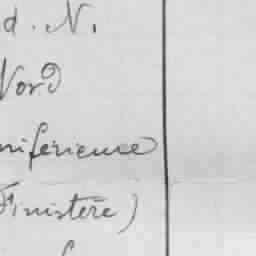 d. N.
Nord
niferieure
Finistère)